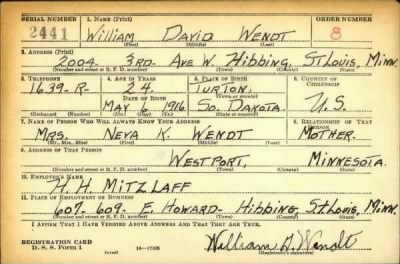 SERIAL NUMBER 1. NAME (Print) ORDER NUMBER
2441 William David Wendt 8
(First) (Middle) (Last)
2. ADDRESS (Print)
2004 3RD- Ave W. Hibbing, St Louis, Minn.
(Number and street or R. F. D. number) (Town) (County) (State)
3. TELEPHONE 4. AGE IN YEARS 5. PLACE OF BIRTH 6. COUNTRY OF CITIZENSHIP
1639-R- 24 Turton,
DATE OF BIRTH
May 6 1916 So. Dakota. U.S.
(Exchange) (Number) (Mo.) (Day) (Yr.) (State or country)
7. NAME OF PERSON WHO WILL ALWAYS KNOW YOUR ADDRESS 8. RELATIONSHIP OF THAT PERSON
Mrs. Neva K. Wendt Mother.
(Mr., Mrs., Miss) (First) (Middle) (Last)
9. ADDRESS OF THAT PERSON
Westport, Minnesota.
(Number and street or R. F. D. number) (Town) (County) (State)
10. EMPLOYER'S NAME
H. H. Mitzlaff
11. PLACE OF EMPLOYMENT OR BUSINESS
607-609- E. Howard- Hibbing, St. Louis, Minn.
(Number and street or R. F. D. number) (Town) (County) (State)
I AFFIRM THAT I HAVE VERIFIED ABOVE ANSWERS AND THAT THEY ARE TRUE.
REGISTRATION CARD
D. S. S. Form 1 16-17105 William D. Wendt
(over) (Registrant's signature)